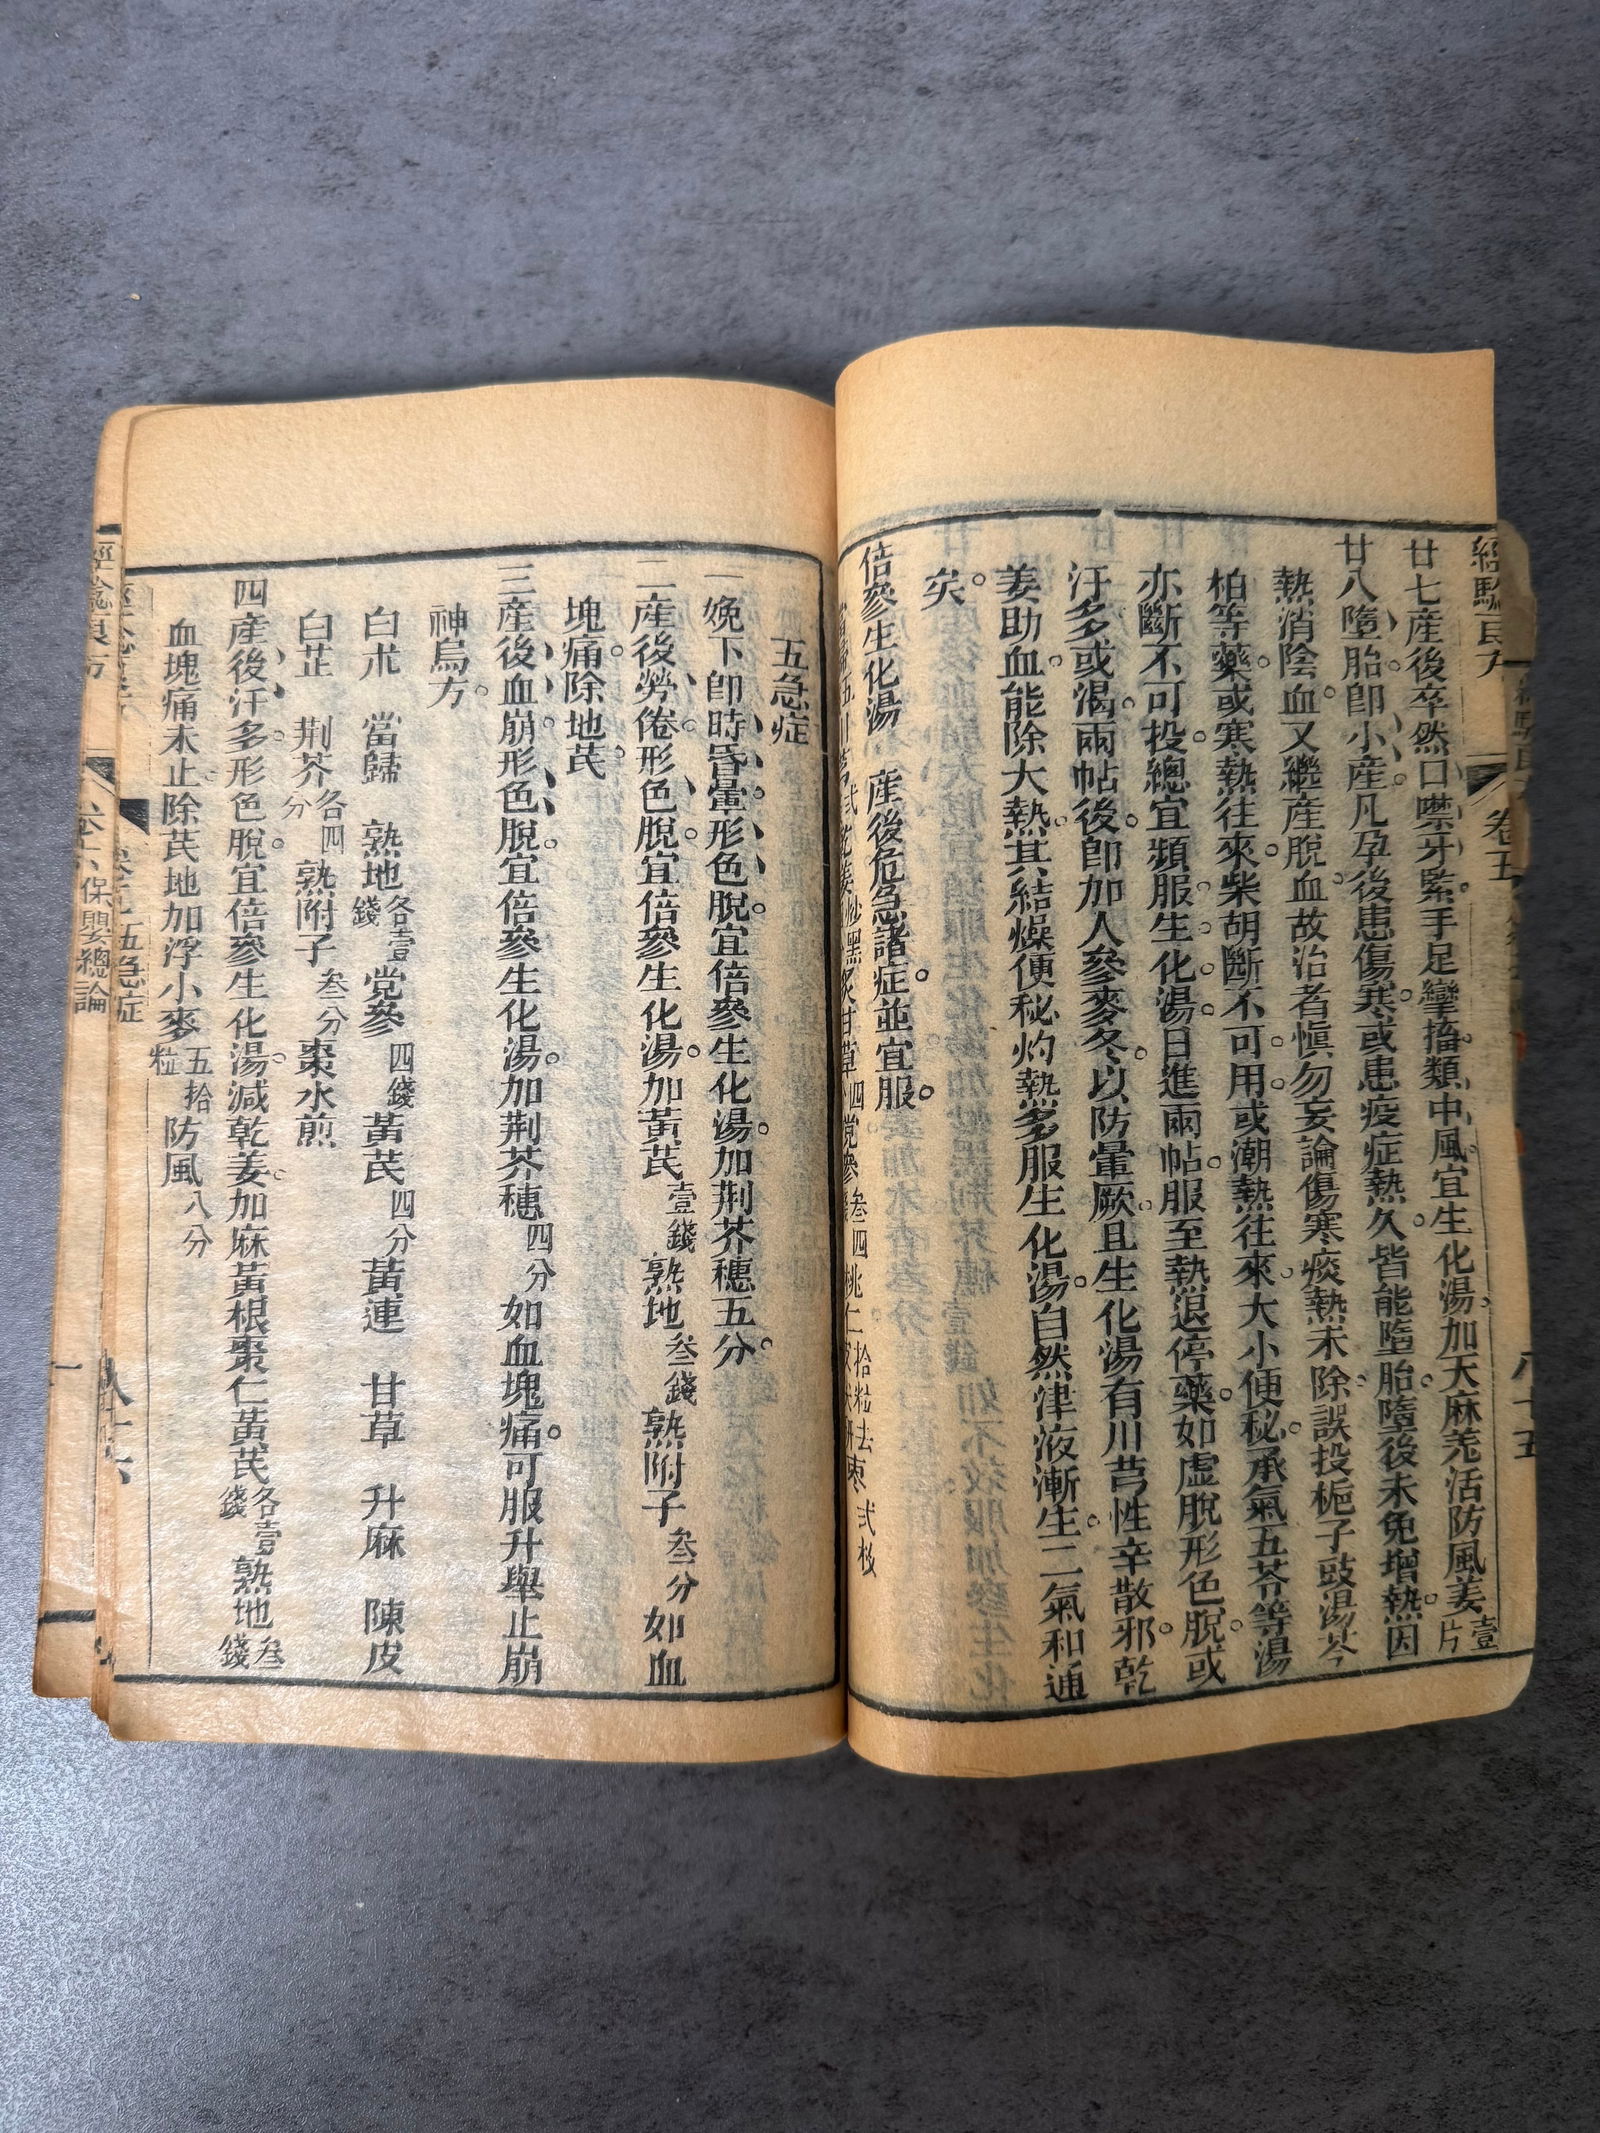 經驗良方 卷五 八十五
廿七產後卒然口噤牙緊手足攣搐類中風宜生化湯加天麻羗活防風姜壹片
廿八墮胎卽小產凡孕後患傷寒或患疫症熱久皆能墮胎墮後未免增熱因
熱消陰血又繼產脫血故治者愼勿妄論傷寒痰熱未除誤投梔子豉湯芩
柏等藥或寒熱往來柴胡斷不可用或潮熱往來大小便秘承氣五苓等湯
亦斷不可投總宜頻服生化湯日進兩帖服至熱退停藥如虛脫形色脫或
汗多或渴兩帖後卽加人參麥冬以防暈厥且生化湯有川芎性辛散邪乾
姜助血能除大熱其結燥便秘灼熱多服生化湯自然津液漸生二氣和通
矣
倍參生化湯 產後危急諸症並宜服
五急症
一娩下卽時昏暈形色脫宜倍參生化湯加荆芥穗五分
二產後勞倦形色脫宜倍參生化湯加黃芪壹錢熟地叁錢熟附子叁分如血
塊痛除地芪
三產後血崩形色脫宜倍參生化湯加荆芥穗四分如血塊痛可服升舉止崩
神烏方
白朮 當歸 熟地各壹錢 党參四錢 黃芪四分 黃連 甘草 升麻 陳皮
白芷 荆芥各四分 熟附子叁分 棗水煎
四產後汗多形色脫宜倍參生化湯減乾姜加麻黃根棗仁黃芪各壹錢熟地叁錢
血塊痛未止除芪地加浮小麥五拾粒防風八分
五急症 八十六
經驗良方 保嬰總論 一